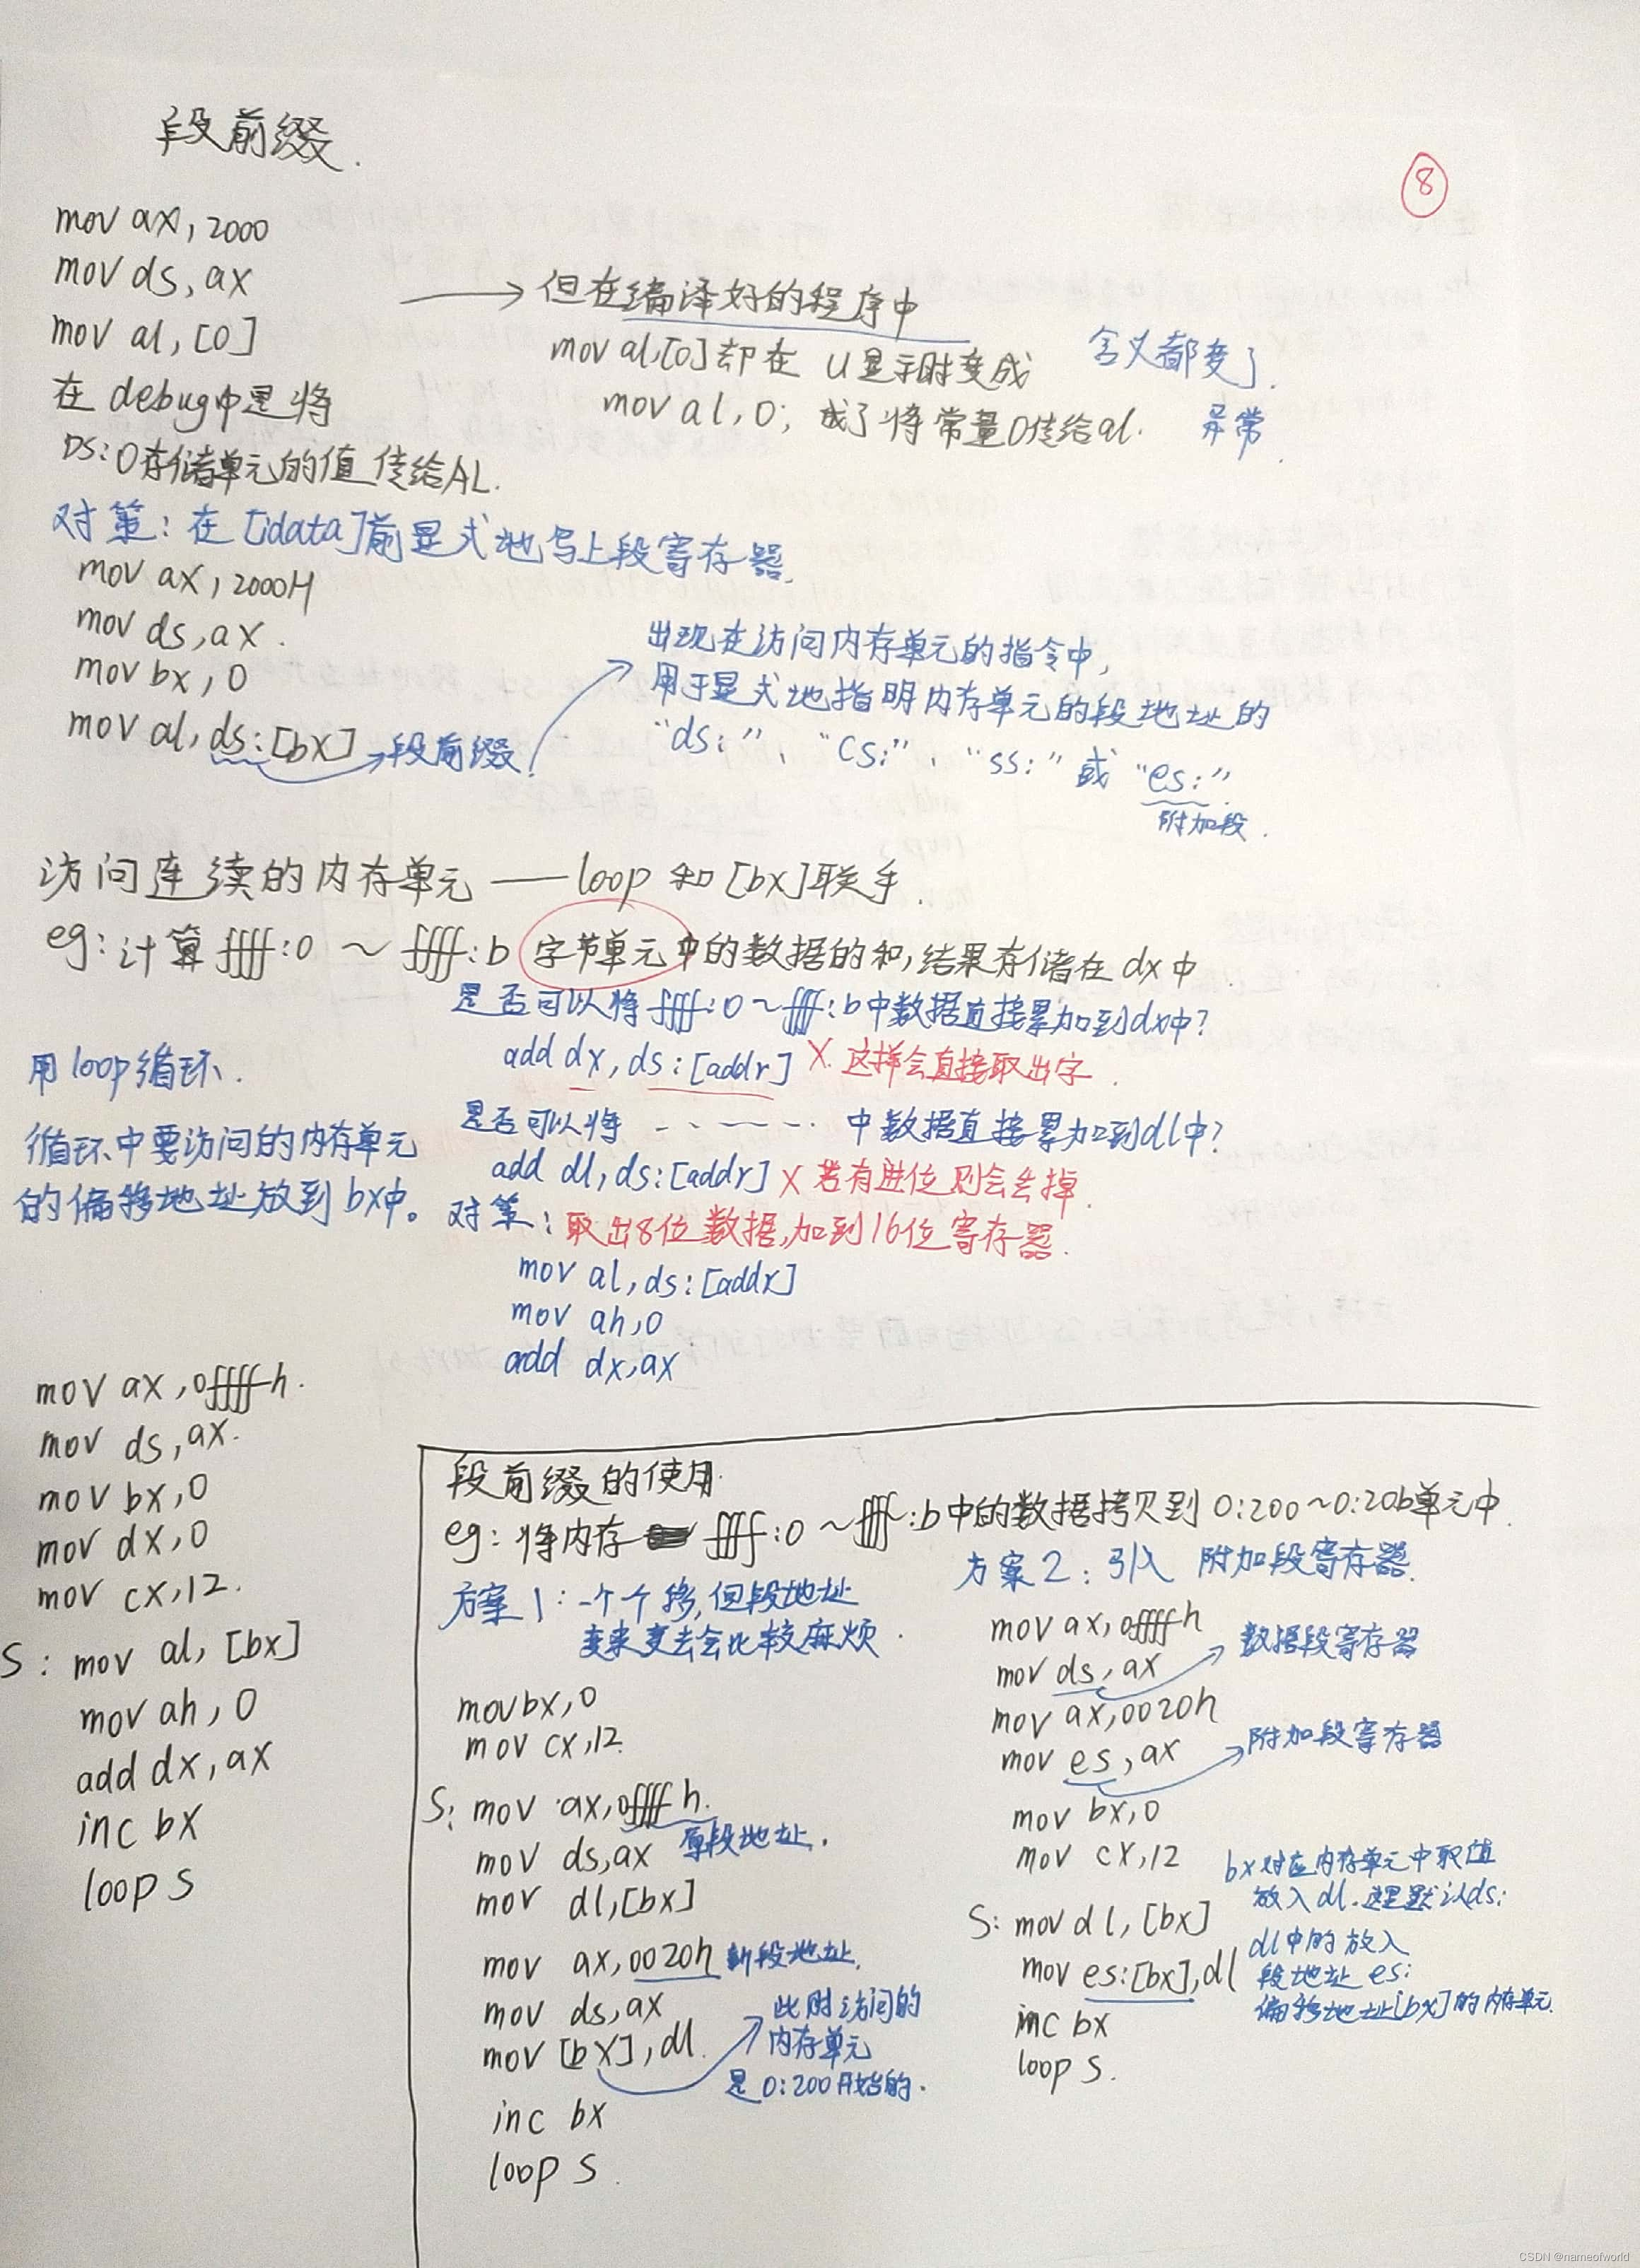 段前缀.
8
mov ax, 2000
mov ds, ax
mov al, [0]
在 debug中是将
DS:0存储单元的值 传给AL.
但在编译好的程序中
mov al,[0] 却在 U显示时变成
mov al, 0; 成了将常量0传给al.
含义都变了.
异常.
对策: 在 [idata]前显式地写上段寄存器.
mov ax, 2000H
mov ds, ax.
mov bx, 0
mov al, ds:[bx]
段前缀.
出现在访问内存单元的指令中,
用于显式地指明内存单元的段地址的
“ds:”、“cs:”、“ss:” 或 “es:”
附加段.
访问连续的内存单元 —— loop 和 [bx]联手.
eg: 计算 ffff:0 ~ ffff:b 字节单元中的数据的和,结果存储在 dx中.
是否可以将 ffff:0~ffff:b中数据直接累加到dx中?
add dx, ds:[addr] X 这样会直接取出字.
是否可以将 ------- 中数据直接累加到dl中?
add dl, ds:[addr] X 若有进位则会丢掉.
对策: 取出8位数据,加到16位寄存器.
mov al, ds:[addr]
mov ah, 0
add dx, ax
用 loop 循环.
循环中要访问的内存单元
的偏移地址放到 bx中。
mov ax, 0ffffh.
mov ds, ax.
mov bx, 0
mov dx, 0
mov cx, 12.
S: mov al, [bx]
mov ah, 0
add dx, ax
inc bx
loop S
段前缀的使用.
eg: 将内存 ffff:0 ~ ffff:b中的数据拷贝到 0:200~0:20b单元中.
方案1: 一个个移, 但段地址
变来变去会比较麻烦.
mov bx, 0
mov cx, 12.
S: mov ax, 0ffffh.
原段地址.
mov ds, ax
mov dl, [bx]
mov ax, 0020h 新段地址.
mov ds, ax
mov [bx], dl.
此时访问的
内存单元
是 0:200开始的.
inc bx
loop S.
方案2: 引入 附加段寄存器.
mov ax, 0ffffh
mov ds, ax
数据段寄存器
mov ax, 0020h
mov es, ax
附加段寄存器
mov bx, 0
mov cx, 12
S: mov dl, [bx]
bx对应内存单元中取值
放入 dl. 这里默认ds:
mov es:[bx], dl
dl中的放入
段地址 es:
偏移地址[bx]的内存单元.
inc bx
loop S.
CSDN @nameofworld